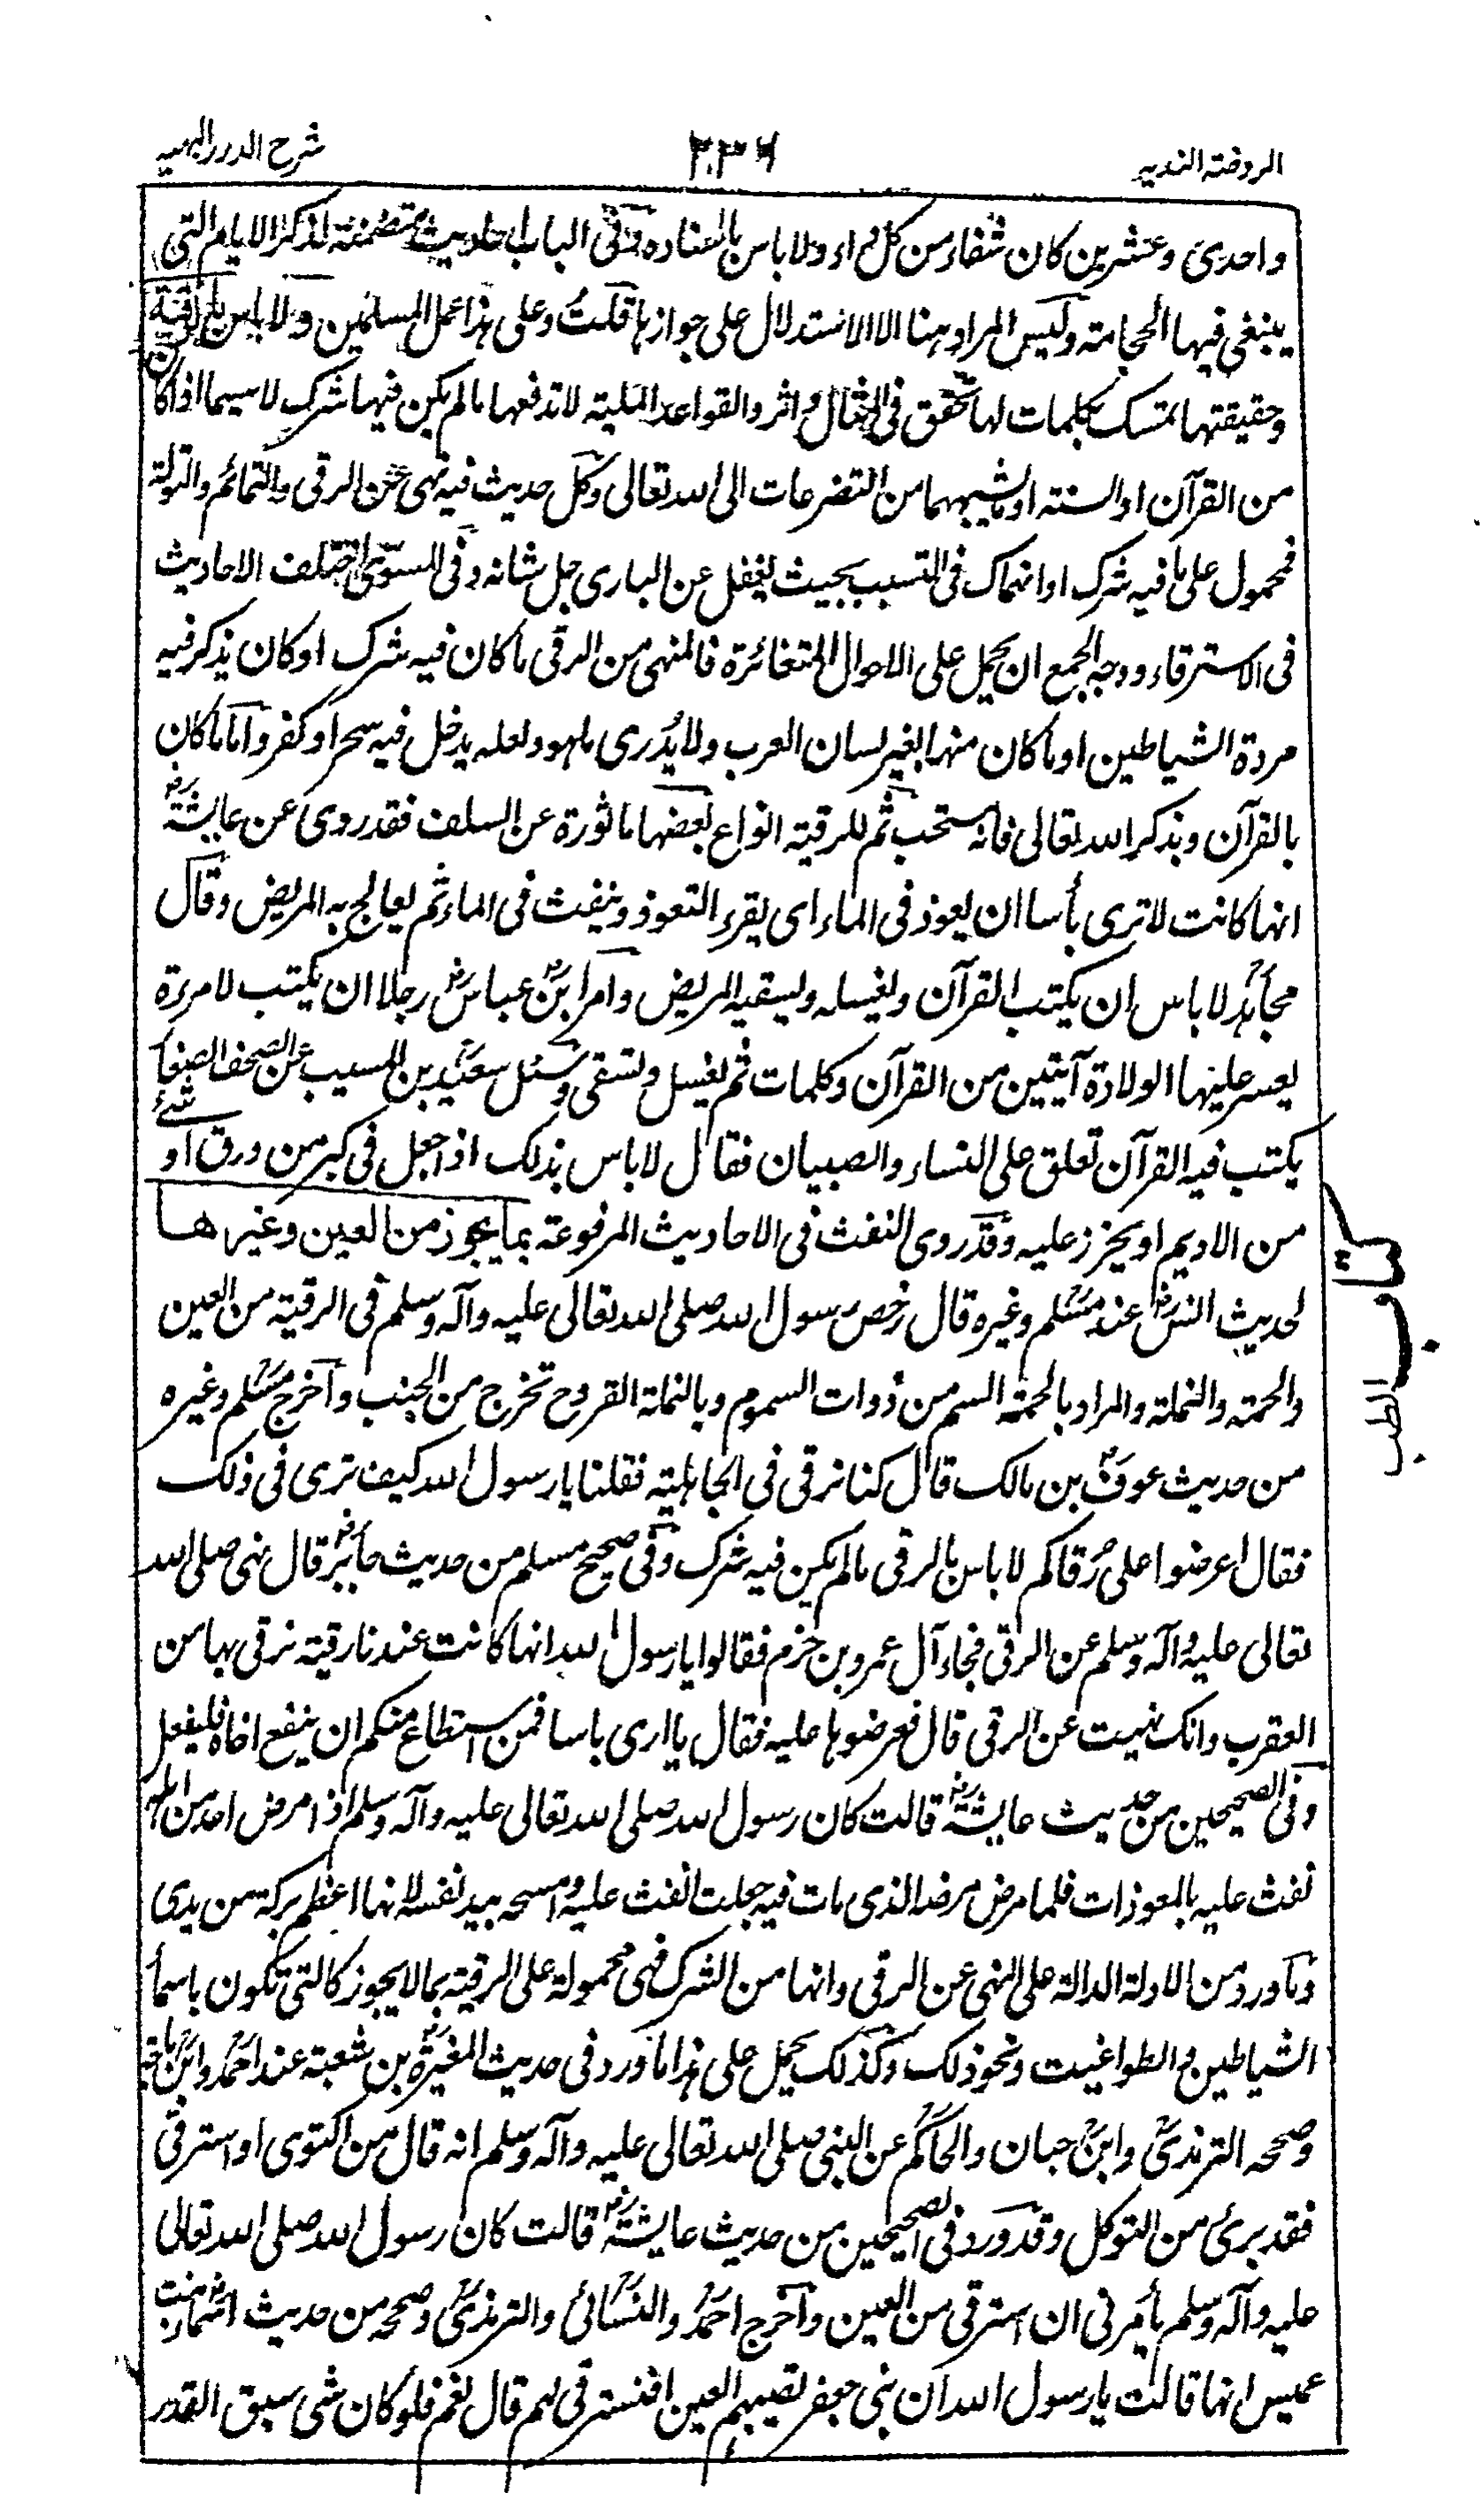 الروضة الندیہ ٣٣٦ شرح الدرر البہیہ
واحدی وعشرین کان شفاء من کل داء ولا باس بالمعتادہ وفی الباب احادیث متضمنة لذکر الایام التی
ینبغی فیہا الحجامة ولیس المراد ہنا الا الاستدلال علی جوازہا قلت وعلی ہذا عمل المسلمین ولا باس بالرقیة
وحقیقتہا تمسک بکلمات لہا تحقق فی المثال واثر والقواعد الملیة لا تدفعہا ما لم یکن فیہا شرک لا سیما اذا کان
من القرآن او السنة او ما یشبہہما من التضرعات الی اللہ تعالی وکل حدیث فیہ نہی عن الرقی والتمائم والتولة
فمحمول علی ما فیہ شرک او انہماک فی التسبب بحیث یغفل عن الباری جل شانہ وفی المسوّی اختلف الاحادیث
فی الاسترقاء ووجہ الجمع ان یحمل علی الاحوال المتغائرة فالمنہی من الرقی ما کان فیہ شرک او کان یذکر فیہ
مردة الشیاطین او ما کان منہا بغیر لسان العرب ولا یُدری ما ہو ولعلہ یدخل فیہ سحر او کفر واما ما کان
بالقرآن وبذکر اللہ تعالی فانہ مستحب ثم للرقیة انواع بعضہا ماثورة عن السلف فقد روی عن عایشة رض
انہا کانت لا تری بأسا ان یعوذ فی الماء ای یقرء التعوذ وینفث فی الماء ثم یعالج بہ المریض وقال
مجاہد لا باس ان یکتب القرآن ویغسلہ ویسقیہ المریض وامر ابن عباس رض رجلا ان یکتب لامرءة
یعسر علیہا الولادة آیتین من القرآن وکلمات ثم یغسل وتسقی وسئل سعید بن المسیب عن الصحف الصغار
یکتب فیہ القرآن تعلق علی النساء والصبیان فقال لا باس بذلک اذا جعل فی کبر من ورق او شئ
من الادیم او یخرز علیہ وقد روی النفث فی الاحادیث المرفوعة بما یجوز من العین وغیرھا
لحدیث انس رض عند مسلم وغیرہ قال رخص رسول اللہ صلی اللہ تعالی علیہ وآلہ وسلم فی الرقیة من العین
والحمة والنملة والمراد بالحمة السم من ذوات السموم وبالنملة القروح تخرج من الجنب واخرج مسلم وغیرہ
من حدیث عوف بن مالک قال کنا نرقی فی الجاہلیة فقلنا یا رسول اللہ کیف تری فی ذلک
فقال اعرضوا علی رُقاکم لا باس بالرقی ما لم یکن فیہ شرک وفی صحیح مسلم من حدیث جابر رض قال نہی صلی اللہ
تعالی علیہ وآلہ وسلم عن الرقی فجاء آل عمرو بن حزم فقالوا یا رسول اللہ انہا کانت عندنا رقیة نرقی بہا من
العقرب وانک نہیت عن الرقی قال فعرضوہا علیہ فقال ما اری باسا فمن استطاع منکم ان ینفع اخاہ فلیفعل
وفی الصحیحین من حدیث عایشة رض قالت کان رسول اللہ صلی اللہ تعالی علیہ وآلہ وسلم اذا مرض احد من اہلہ
نفث علیہ بالمعوذات فلما مرض مرضہ الذی مات فیہ جعلت انفث علیہ وامسحہ بید نفسہ لانہا اعظم برکة من یدی
وما ورد من الادلة الدالة علی النہی عن الرقی وانہا من الشرک فہی محمولة علی الرقیة بما لا یجوز کالتی تکون باسماء
الشیاطین والطواغیت ونحو ذلک وکذلک یحمل علی ہذا ما ورد فی حدیث المغیرة بن شعبة عند احمد وابن ماجة
وصححہ الترمذی وابن حبان والحاکم عن النبی صلی اللہ تعالی علیہ وآلہ وسلم انہ قال من اکتوی او استرقی
فقد برئ من التوکل وقد ورد فی الصحیحین من حدیث عایشة رض قالت کان رسول اللہ صلی اللہ تعالی
علیہ وآلہ وسلم یأمرنی ان استرقی من العین واخرج احمد والنسائی والترمذی وصححہ من حدیث اسماء بنت
عمیس انہا قالت یا رسول اللہ ان بنی جعفر تصیبہم العین افنسترقی لہم قال نعم فلو کان شی سبق القدر
الطب